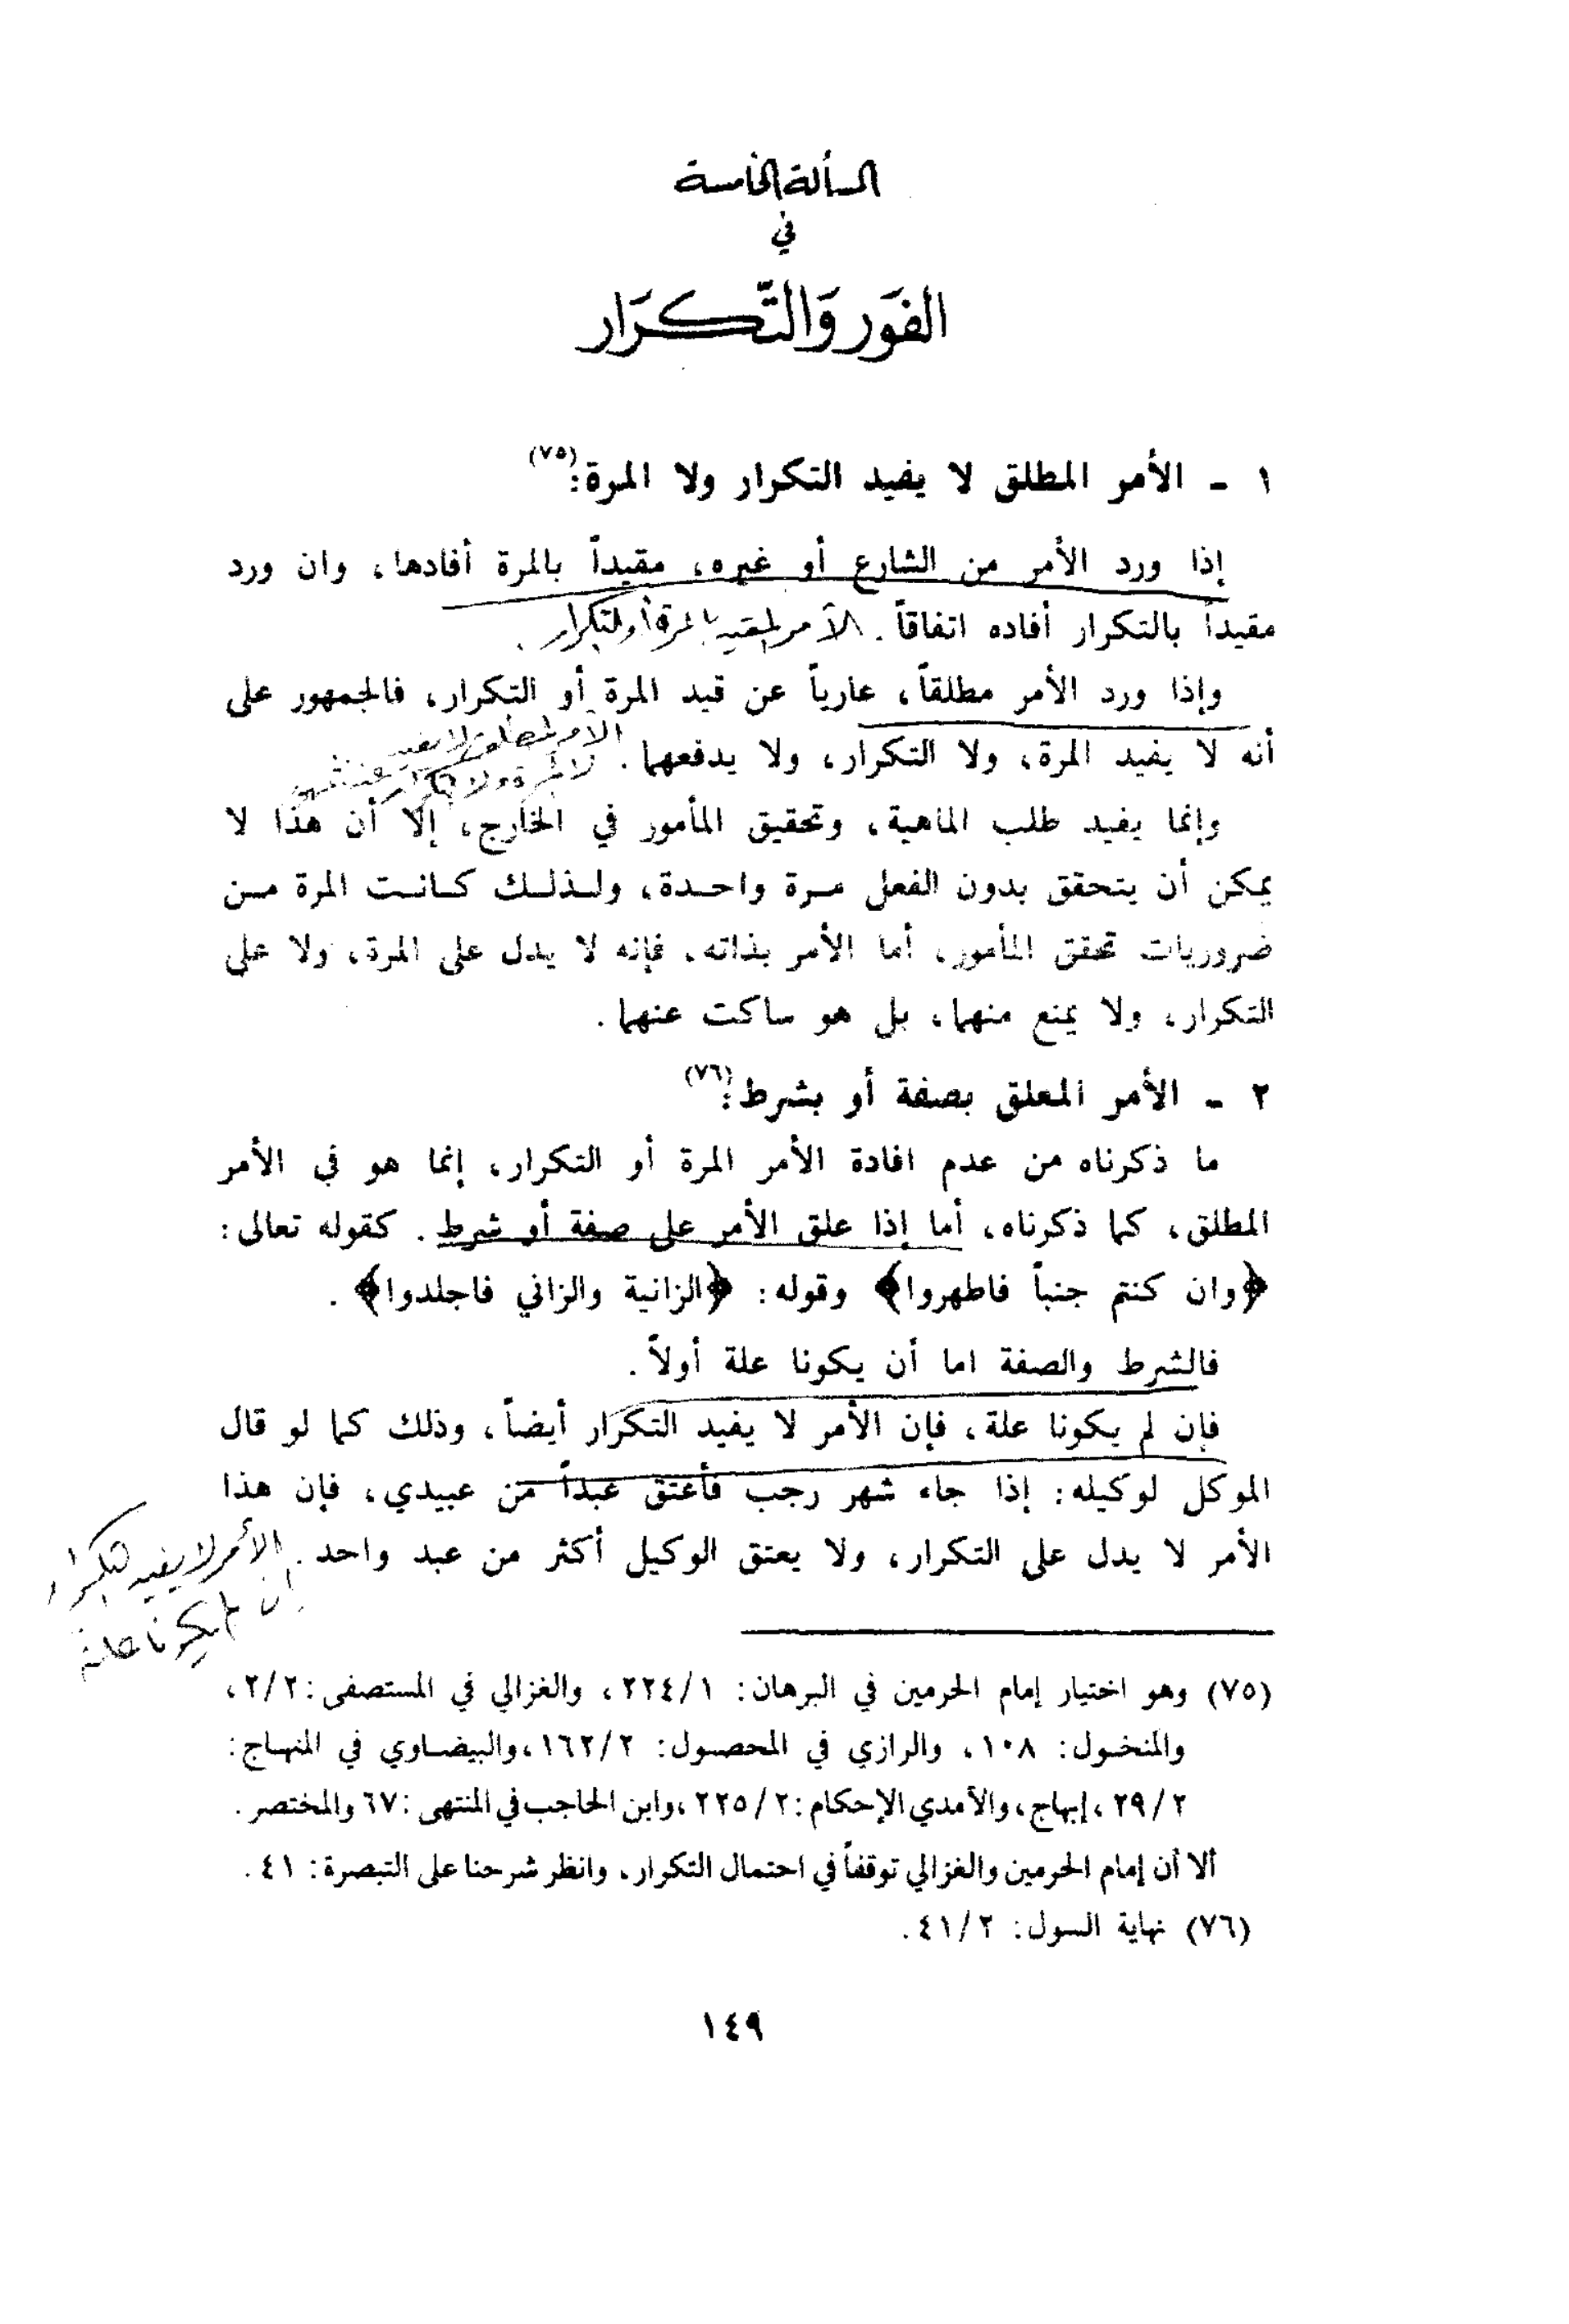 المسألة الخامسة
في
الفَور وَالتّكرَار
١ - الأمر المطلق لا يفيد التكرار ولا المرة:(٧٥)
إذا ورد الأمر من الشارع أو غيره، مقيداً بالمرة أفادها، وان ورد
مقيداً بالتكرار أفاده اتفاقاً. الأمر المقيد بالمرة أو التكرار.
وإذا ورد الأمر مطلقاً، عارياً عن قيد المرة أو التكرار، فالجمهور على
الأمر المطلق لا يفيد
أنه لا يفيد المرة، ولا التكرار، ولا يدفعهما. لا المرة ولا تكرار
وإنما يفيد طلب الماهية، وتحقيق المأمور في الخارج، إلا أن هذا لا
يمكن أن يتحقق بدون الفعل مرة واحدة، ولذلك كانت المرة من
ضروريات تحقق المأمور، أما الأمر بذاته، فإنه لا يدل على المرة، ولا على
التكرار، ولا يمنع منهما، بل هو ساكت عنهما.
٢ - الأمر المعلق بصفة أو بشرط:(٧٦)
ما ذكرناه من عدم افادة الأمر المرة أو التكرار، إنما هو في الأمر
المطلق، كما ذكرناه، أما إذا علق الأمر على صفة أو شرط. كقوله تعالى:
﴿وان كنتم جنباً فاطهروا﴾ وقوله: ﴿الزانية والزاني فاجلدوا﴾.
فالشرط والصفة اما أن يكونا علة أولاً.
فإن لم يكونا علة، فإن الأمر لا يفيد التكرار أيضاً، وذلك كما لو قال
الموكل لوكيله: إذا جاء شهر رجب فأعتق عبداً من عبيدي، فإن هذا
الأمر لا يدل على التكرار، ولا يعتق الوكيل أكثر من عبد واحد.
الأمر لا يفيد التكرار
إن لم يكونا علة
(٧٥) وهو اختيار إمام الحرمين في البرهان: ٢٢٤/١، والغزالي في المستصفى: ٢/٢،
والمنخول: ١٠٨، والرازي في المحصول: ١٦٢/٢، والبيضاوي في المنهاج:
٢٩/٢، إبهاج، والآمدي الإحكام: ٢٢٥/٢، وابن الحاجب في المنتهى: ٦٧ والمختصر.
ألا أن إمام الحرمين والغزالي توقفاً في احتمال التكرار، وانظر شرحنا على التبصرة: ٤١.
(٧٦) نهاية السول: ٤١/٢.
١٤٩